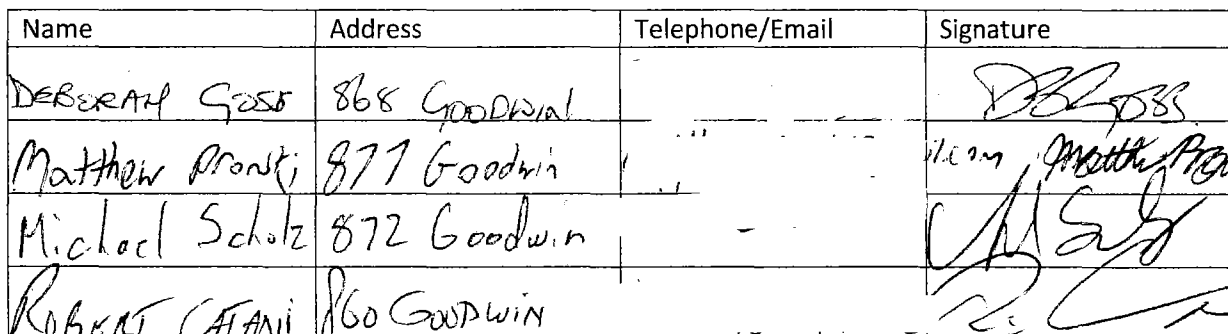 Name Address Telephone/Email Signature
DEBORAH GOSS 868 GOODWIN DBGoss
Matthew Pronsti 877 Goodwin il.com Matth
Michael Scholz 872 Goodwin
ROBERT CATANII 860 GOODWIN